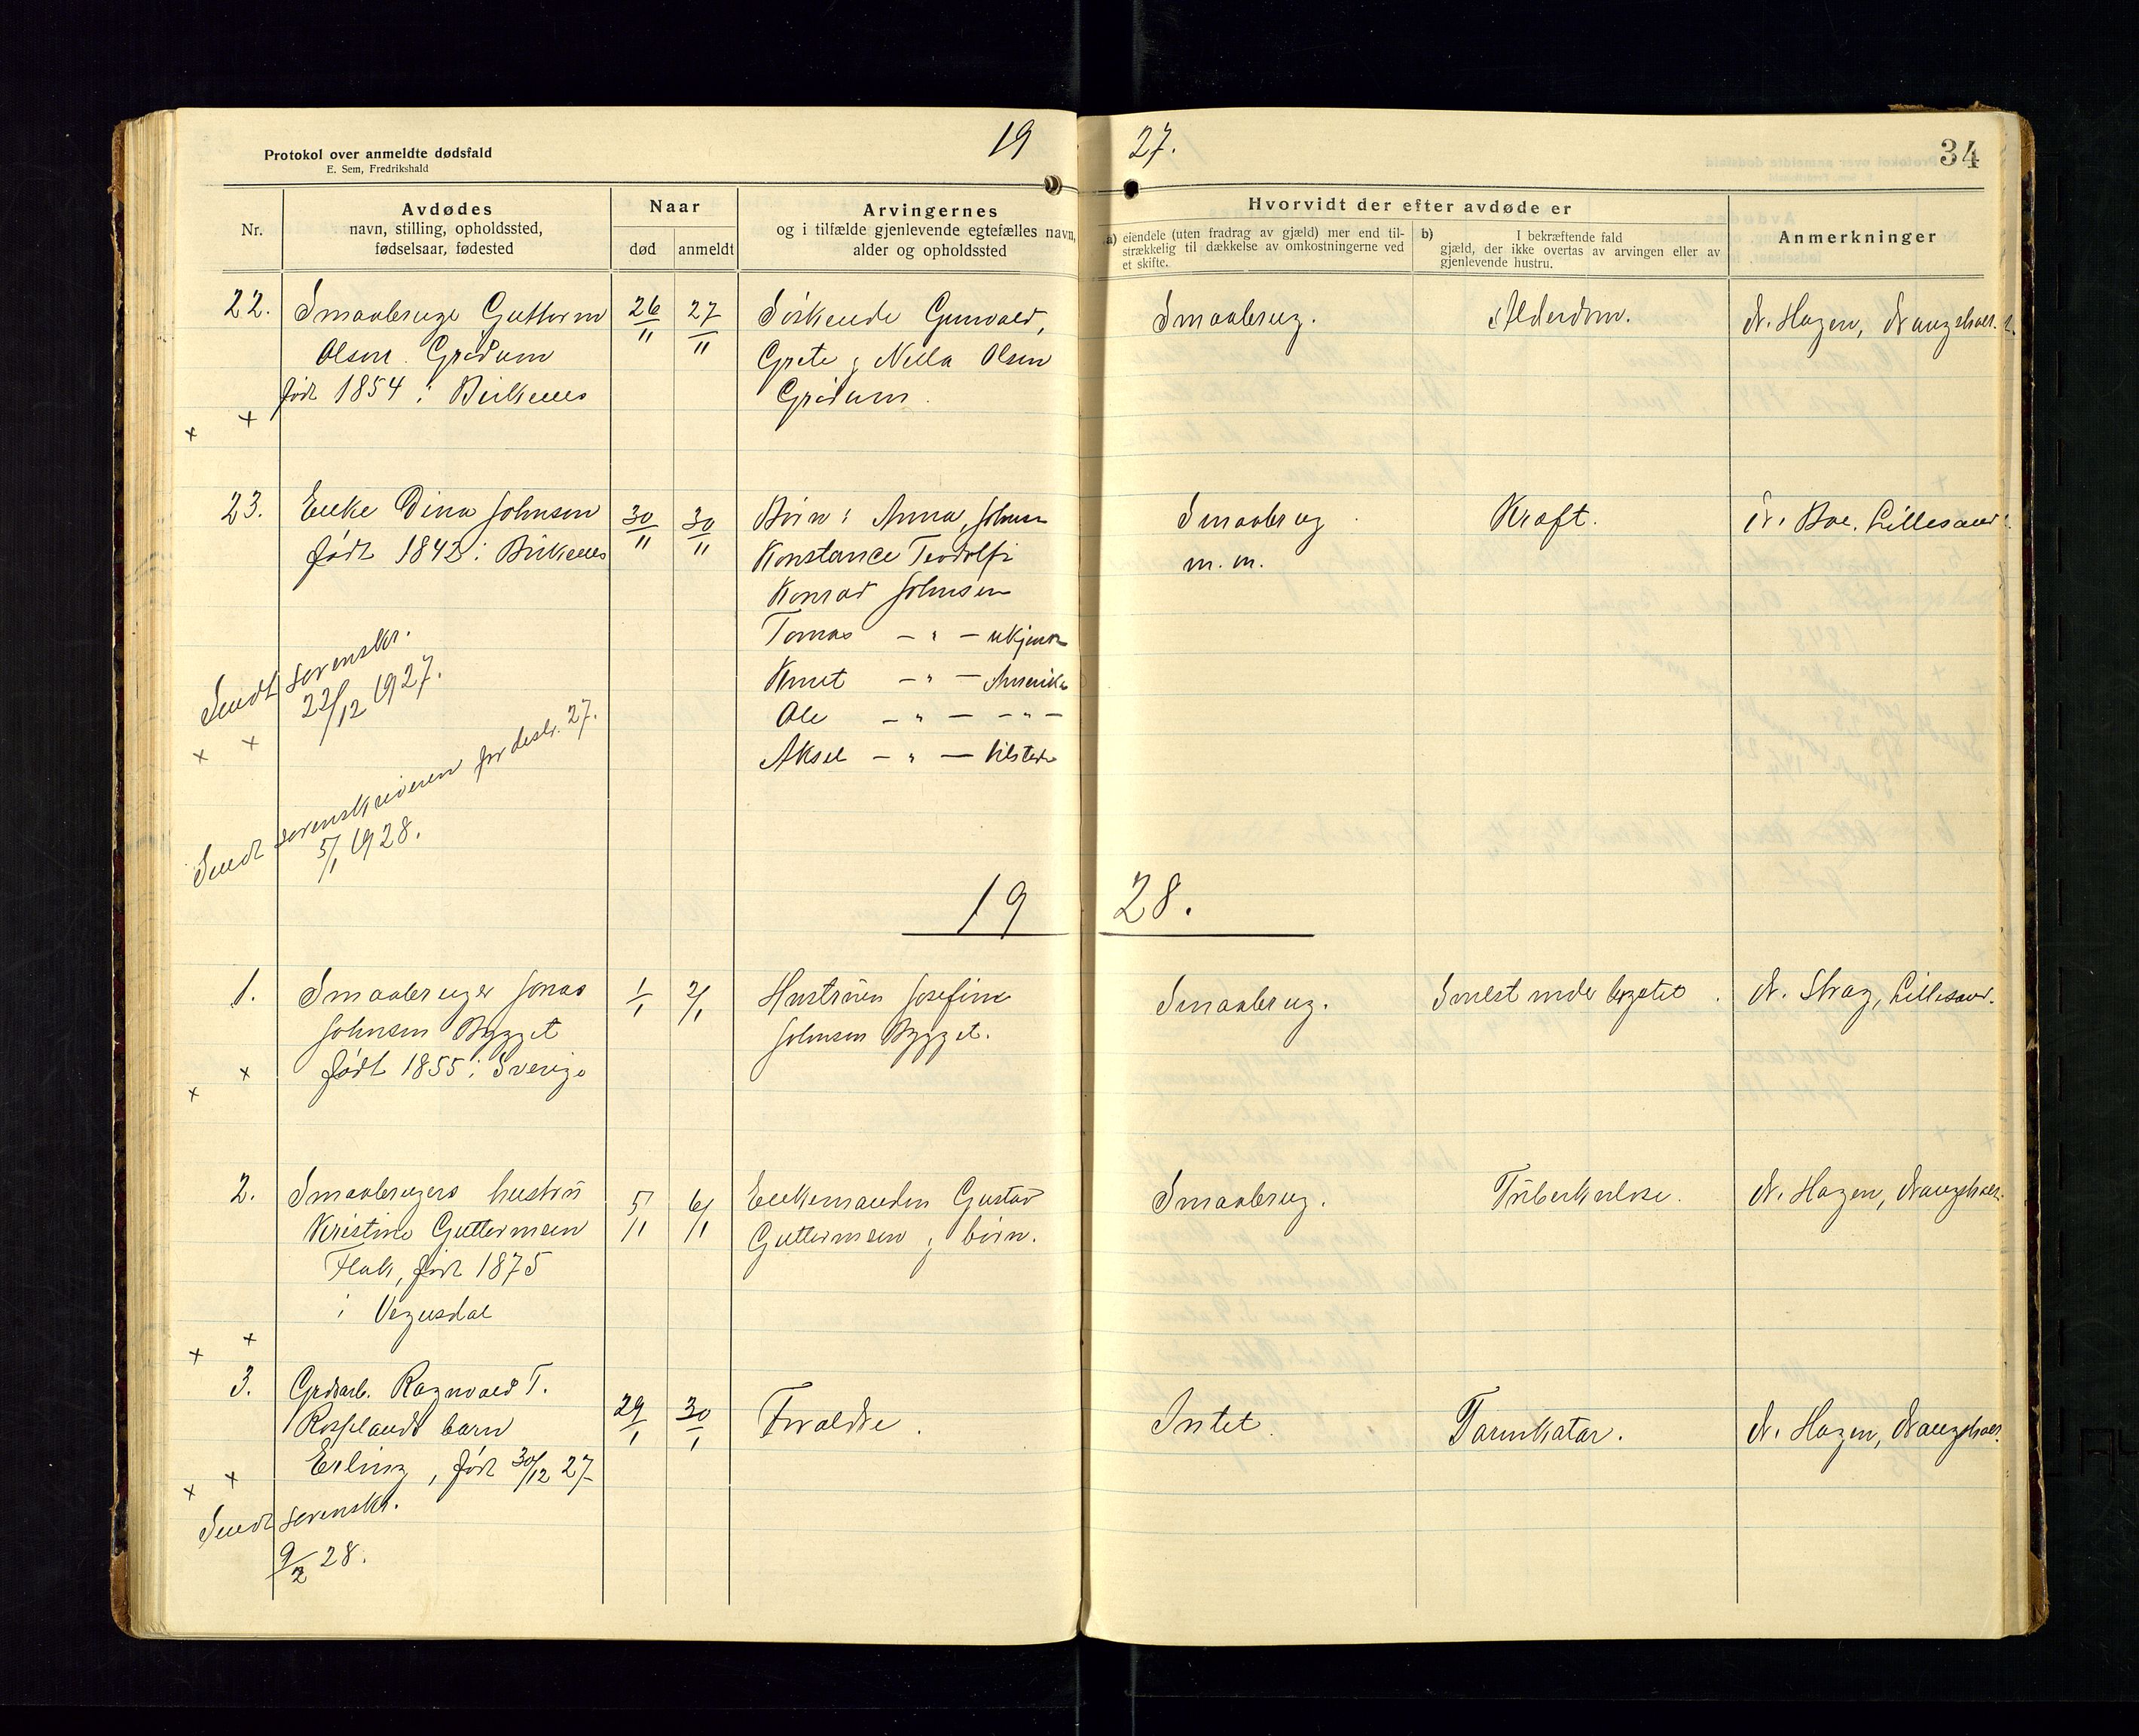 Protokol over anmeldte dødsfald
E. Sem, Fredrikshald
19 27.
34
Nr.
Avdødes
navn, stilling, opholdssted,
fødselsaar, fødested
Naar
død anmeldt
Arvingernes
og i tilfælde gjenlevende egtefælles navn,
alder og opholdssted
Hvorvidt der efter avdøde er
a) eiendele (uten fradrag av gjæld) mer end til-
strækkelig til dækkelse av omkostningerne ved
et skifte.
b) I bekræftende fald
gjæld, der ikke overtas av arvingen eller av
gjenlevende hustru.
Anmerkninger
22. Smaabruger Guttorm
Olsen Grødum
født 1854 i Birkenes
26/11 27/11
Søskende Gunvald,
Grete og Nella Olsen
Grødum.
Smaabrug. Alderdom. N. Hagen,
× +
23. Enke Dina Johnsen
født 1842 i Birkenes
30/11 30/11
Børn: Anna Johnsen
Konstance
Konrad Johnsen
Tomas — " — ukjent
Knut — " — Amerika
Ole — " — — " —
Aksel — " —
Smaabrug
m. m.
Kræft. N. Boe. Lillesand.
Sendt sorenskr.
22/12 1927.
× ×
Sendt sorenskriveren for desbr. 27.
5/1 1928.
19 28.
1. Smaabruger Jonas
Johnsen Bygget
født 1855 i Sverige
1/1 2/1
Hustruen Josefine
Johnsen Bygget.
Smaabrug. N. Strag, Lillesand.
× ×
2. Smaabrugers hustru
Kristine Guttormsen
Flak, født 1875
i Vegusdal
5/1 6/1
Enkemanden Gustav
Guttormsen og børn.
Smaabrug. Tuberkulose. N. Hagen,
× +
3. Grdarb. Ragnvald T.
Rosseland's barn
Erling, født 30/12 27
29/1 30/1
Forældre.
Intet. Tarmkatar. N. Hagen,
× ×
Sendt sorenskr.
9/2 28.